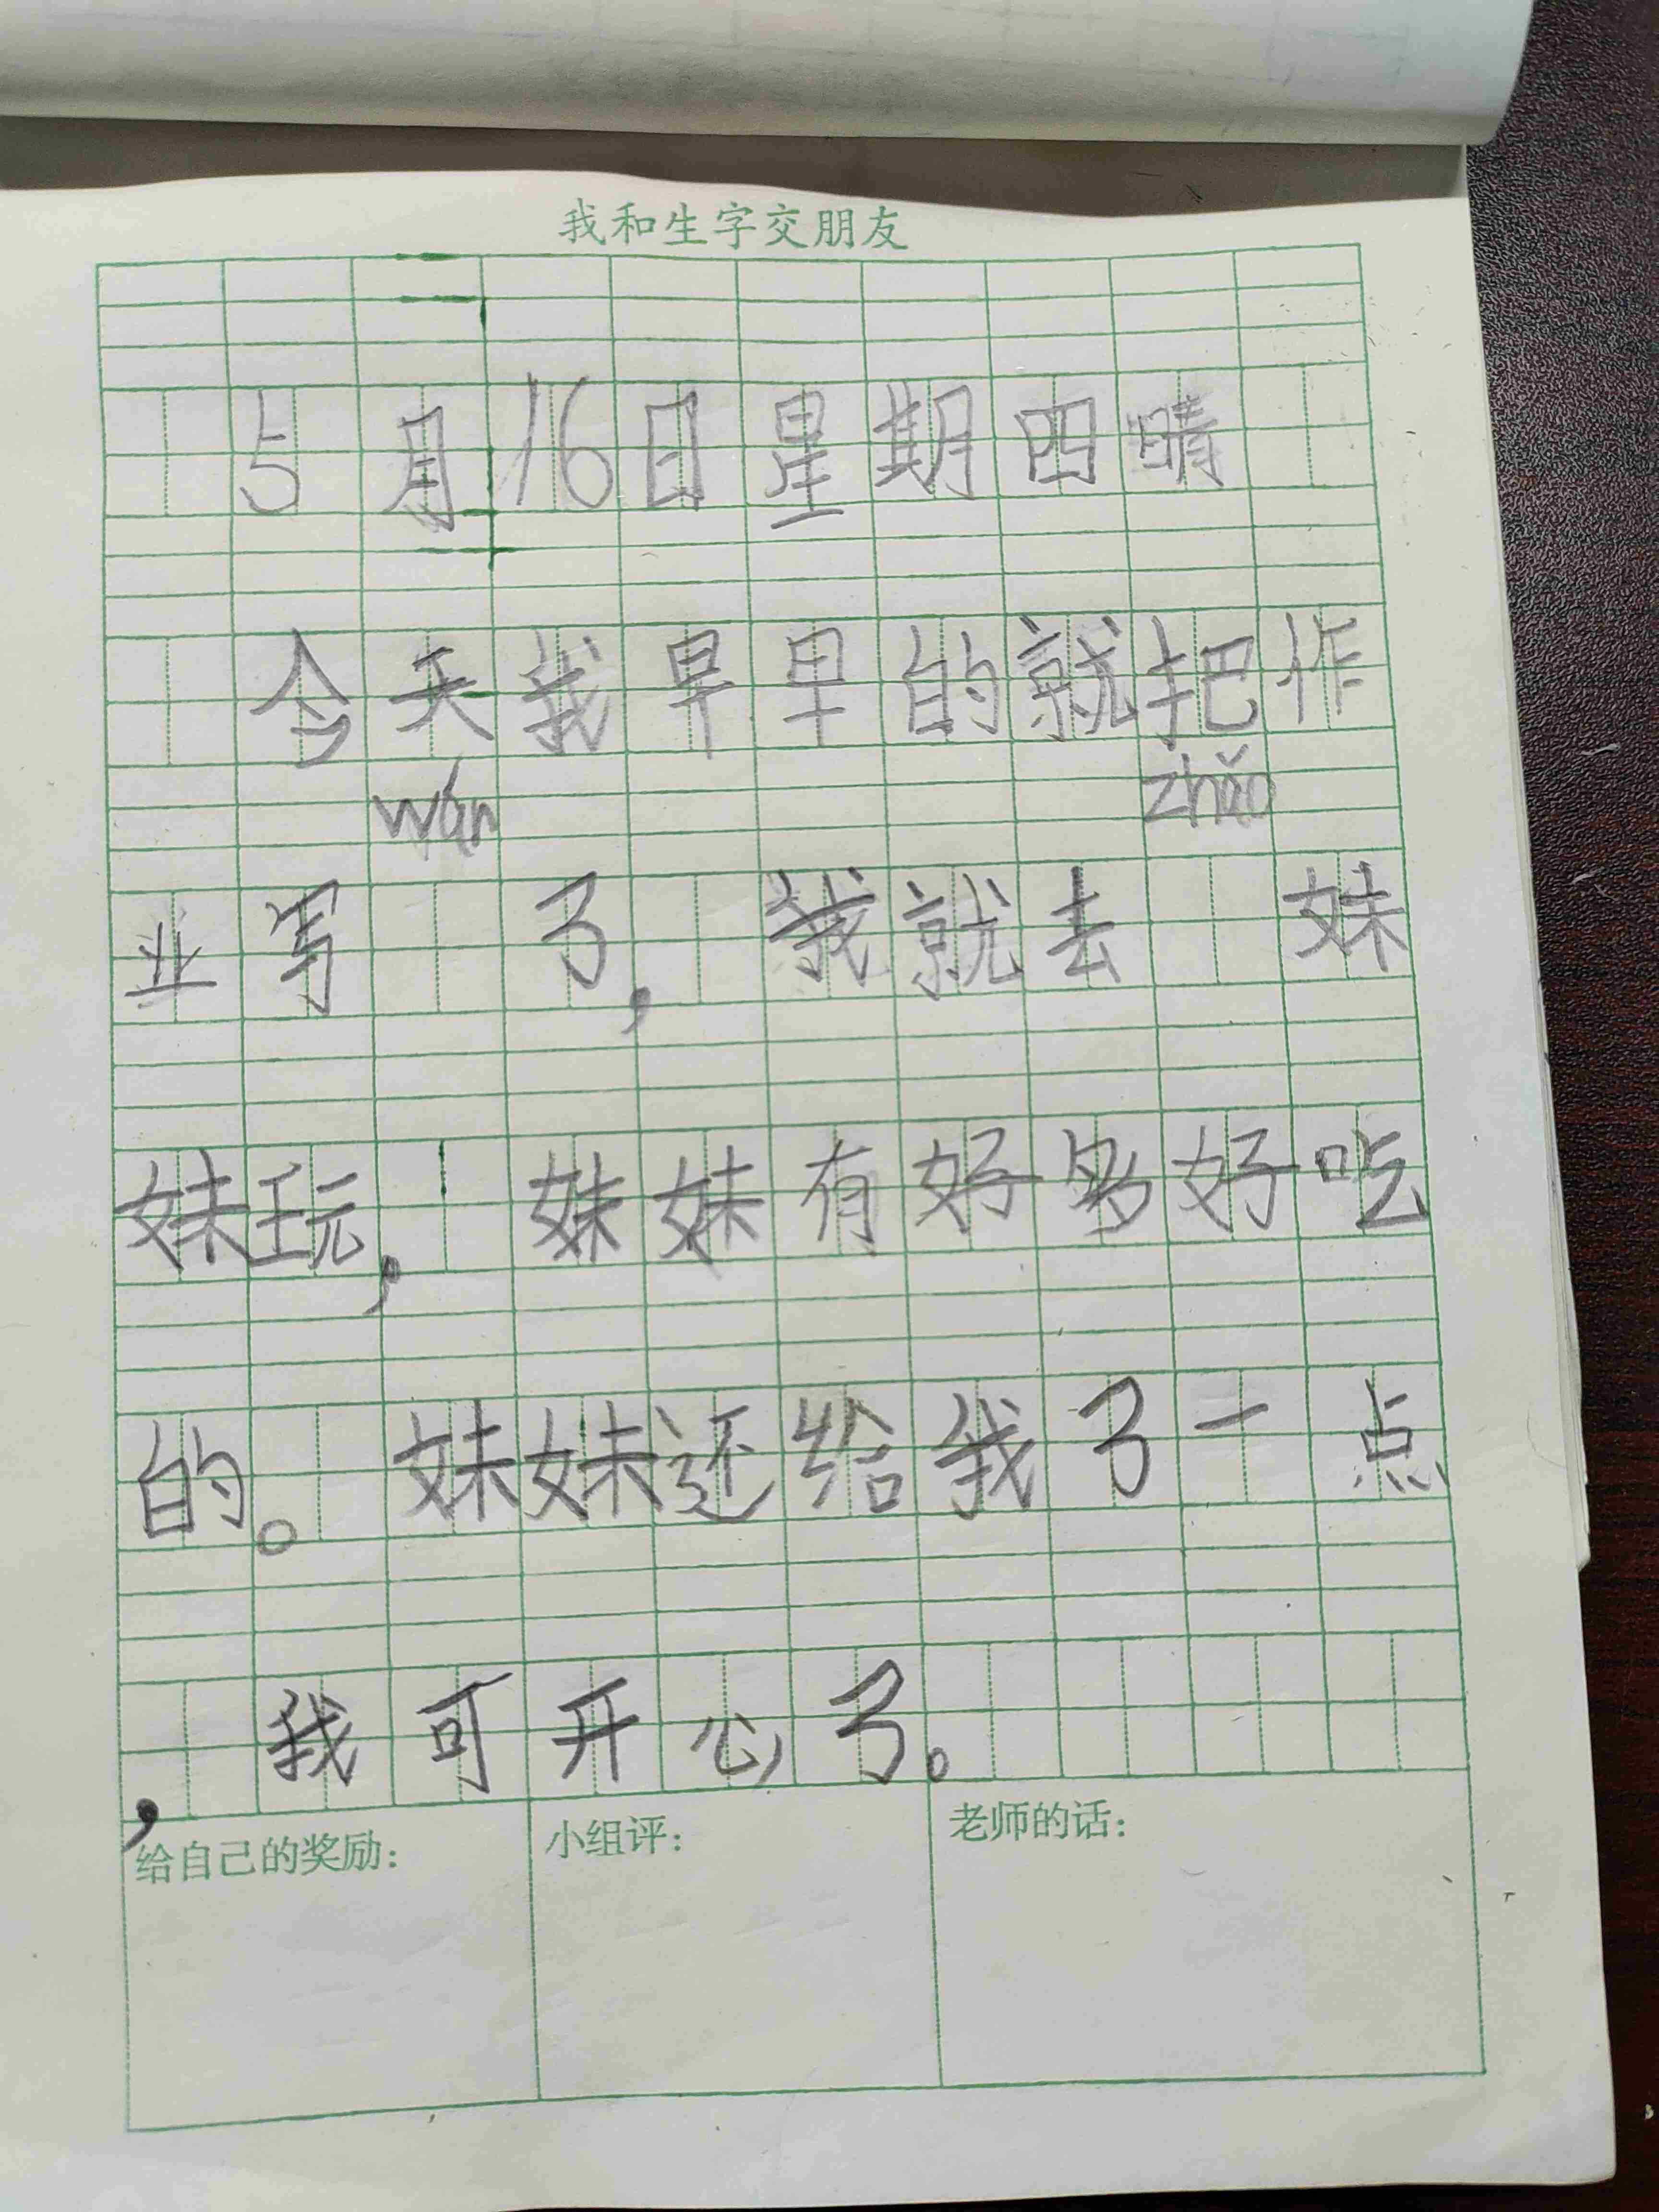 我和生字交朋友
5月16日星期四晴
今天我早早的就把作
wán zhǎo
业写 了，我就去 妹
妹玩，妹妹有好多好吃
的。妹妹还给我了一点
，我可开心了。
给自己的奖励： 小组评： 老师的话：